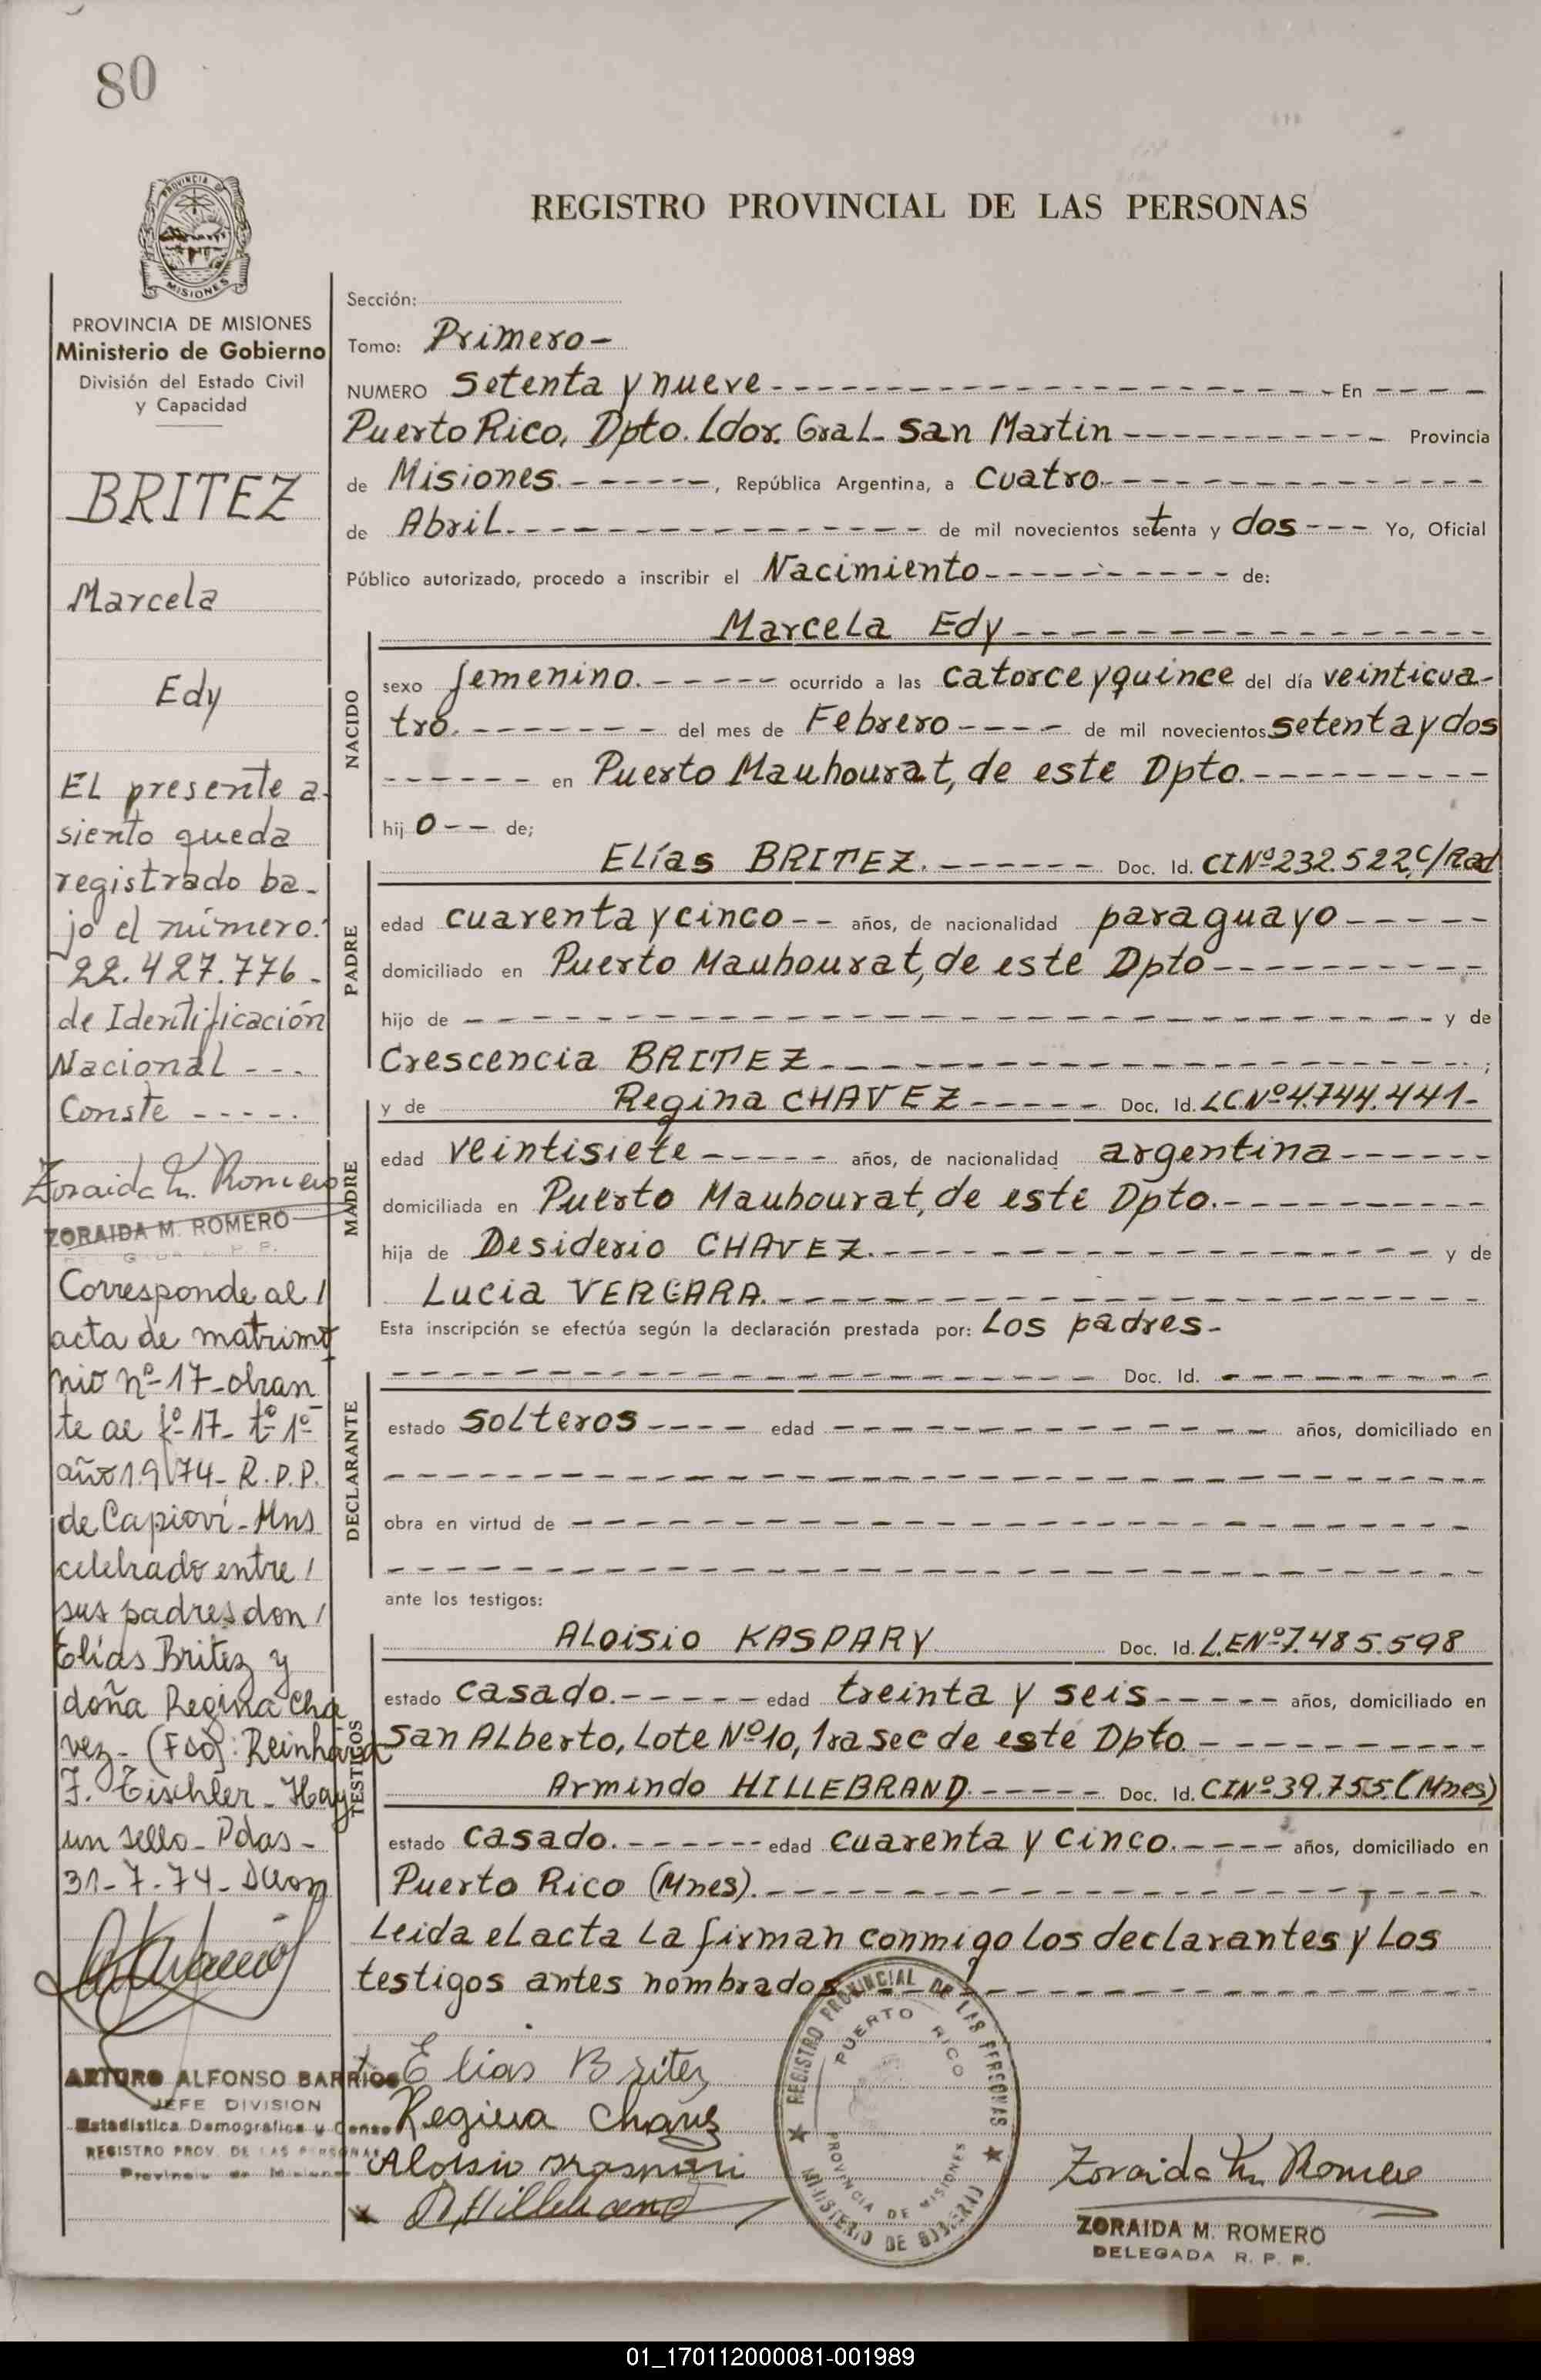 80
PROVINCIA DE
MISIONES
PROVINCIA DE MISIONES
Ministerio de Gobierno
División del Estado Civil
y Capacidad
BRITEZ
Marcela
Edy
EL presente a-
siento queda
registrado ba-
jo el número:
22.427.776-
de Identificación
Nacional ---
Conste -----
Zoraida M. Romero
ZORAIDA M. ROMERO
Corresponde al /
acta de matrimo
nio nº-17-obran
te al fº-17- tº 1º
año 1.974- R.P.P.
de Capioví-Mns
celebrado entre /
sus padres don /
Elías Britez y
doña Regina Cha
vez- (Fdo): Reinhard
J. Tischler- Hay
un sello- Pdas-
31-7-74-
ARTURO ALFONSO BARRIOS
JEFE DIVISION
Estadistica Demografica y Censo
REGISTRO PROV. DE LAS PERSONAS
Provincia de Misiones
REGISTRO PROVINCIAL DE LAS PERSONAS
Sección:
Tomo: Primero-
NUMERO Setenta y nueve - En
Puerto Rico, Dpto. Ldor. Gral. San Martin - Provincia
de Misiones.-, República Argentina, a Cuatro.-
de Abril.- de mil novecientos setenta y dos--- Yo, Oficial
Público autorizado, procedo a inscribir el Nacimiento- de:
Marcela Edy-
NACIDO
sexo femenino.- ocurrido a las catorce y quince del día veinticua-
tro.- del mes de Febrero- de mil novecientos setenta y dos
- en Puerto Mauhourat, de este Dpto.-
hij o-- de;
PADRE
Elías BRITEZ.- Doc. Id. CINº232.522,C/Rad
edad cuarenta y cinco-- años, de nacionalidad paraguayo-
domiciliado en Puerto Maubourat, de este Dpto-
hijo de - y de
Crescencia BRITEZ.- ;
MADRE
y de Regina CHAVEZ- Doc. Id. LC.Nº4.744.441-
edad veintisiete- años, de nacionalidad argentina-
domiciliada en Puerto Maubourat, de este Dpto.-
hija de Desiderio CHAVEZ.- y de
Lucia VERGARA.-
Esta inscripción se efectúa según la declaración prestada por: Los padres-
DECLARANTE
- Doc. Id. -
estado solteros- edad - años, domiciliado en
-
obra en virtud de -
-
ante los testigos:
TESTIGOS
ALoisio KASPARY Doc. Id. L.ENº7.485.598
estado casado.- edad treinta y seis- años, domiciliado en
San ALberto, Lote Nº10, 1ra sec de este Dpto.-
Armindo HILLEBRAND.- Doc. Id. CINº39.755.(Mnes)
estado casado.- edad cuarenta y cinco.- años, domiciliado en
Puerto Rico (Mnes).-
Leida el acta La firman conmigo Los declarantes y Los
testigos antes nombrados-
Elias Britez
Regina Chavez
Aloisio Kaspari
A. Hillebrand
REGISTRO PROVINCIAL DE LAS PERSONAS
PUERTO RICO
PROVINCIA DE MISIONES
MINISTERIO DE GOBIERNO
Zoraida M. Romero
ZORAIDA M. ROMERO
DELEGADA R. P. P.
01_170112000081-001989